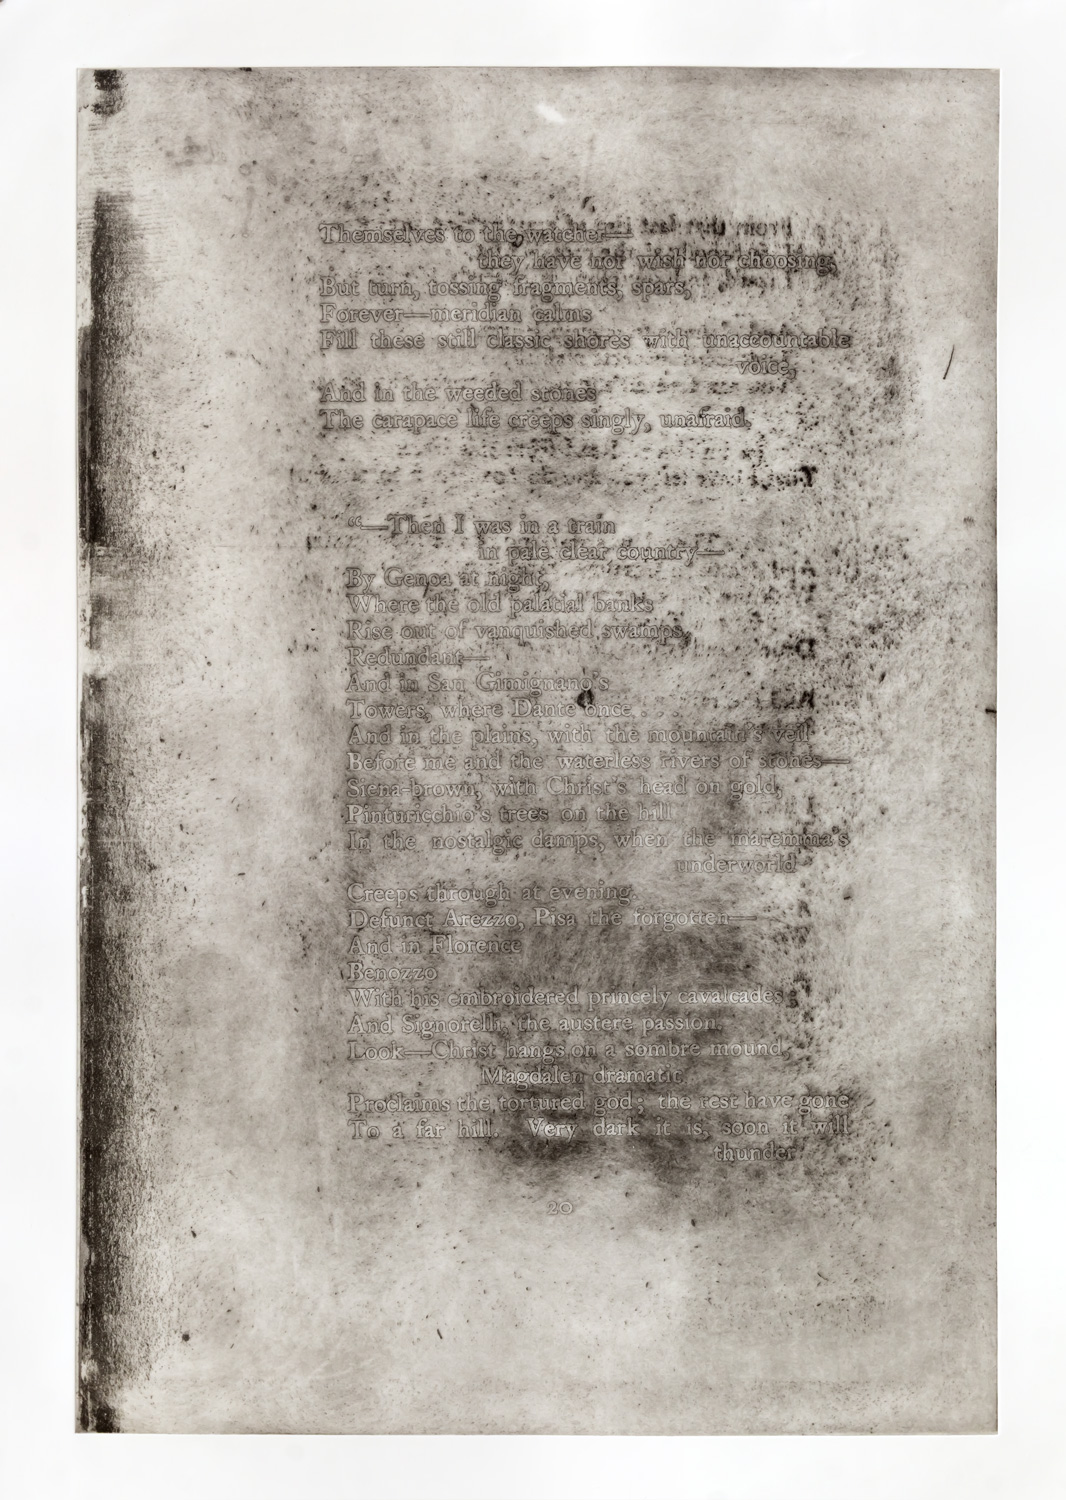 Themselves to the watcher—
they have not wish nor choosing,
But turn, tossing fragments, spars,
Forever—meridian calms
Fill these still classic shores with unaccountable
voice,
And in the weeded stones
The carapace life creeps singly, unafraid.
“—Then I was in a train
in pale clear country—
By Genoa at night,
Where the old palatial banks
Rise out of vanquished swamps,
Redundant—
And in San Gimignano's
Towers, where Dante once . . . . .
And in the plains, with the mountain's veil
Before me and the waterless rivers of stones—
Siena-brown, with Christ's head on gold,
Pinturicchio's trees on the hill
In the nostalgic damps, when the maremma's
underworld
Creeps through at evening.
Defunct Arezzo, Pisa the forgotten—
And in Florence
Benozzo
With his embroidered princely cavalcades,
And Signorelli, the austere passion.
Look—Christ hangs on a sombre mound,
Magdalen dramatic
Proclaims the tortured god; the rest have gone
To a far hill. Very dark it is, soon it will
thunder
20